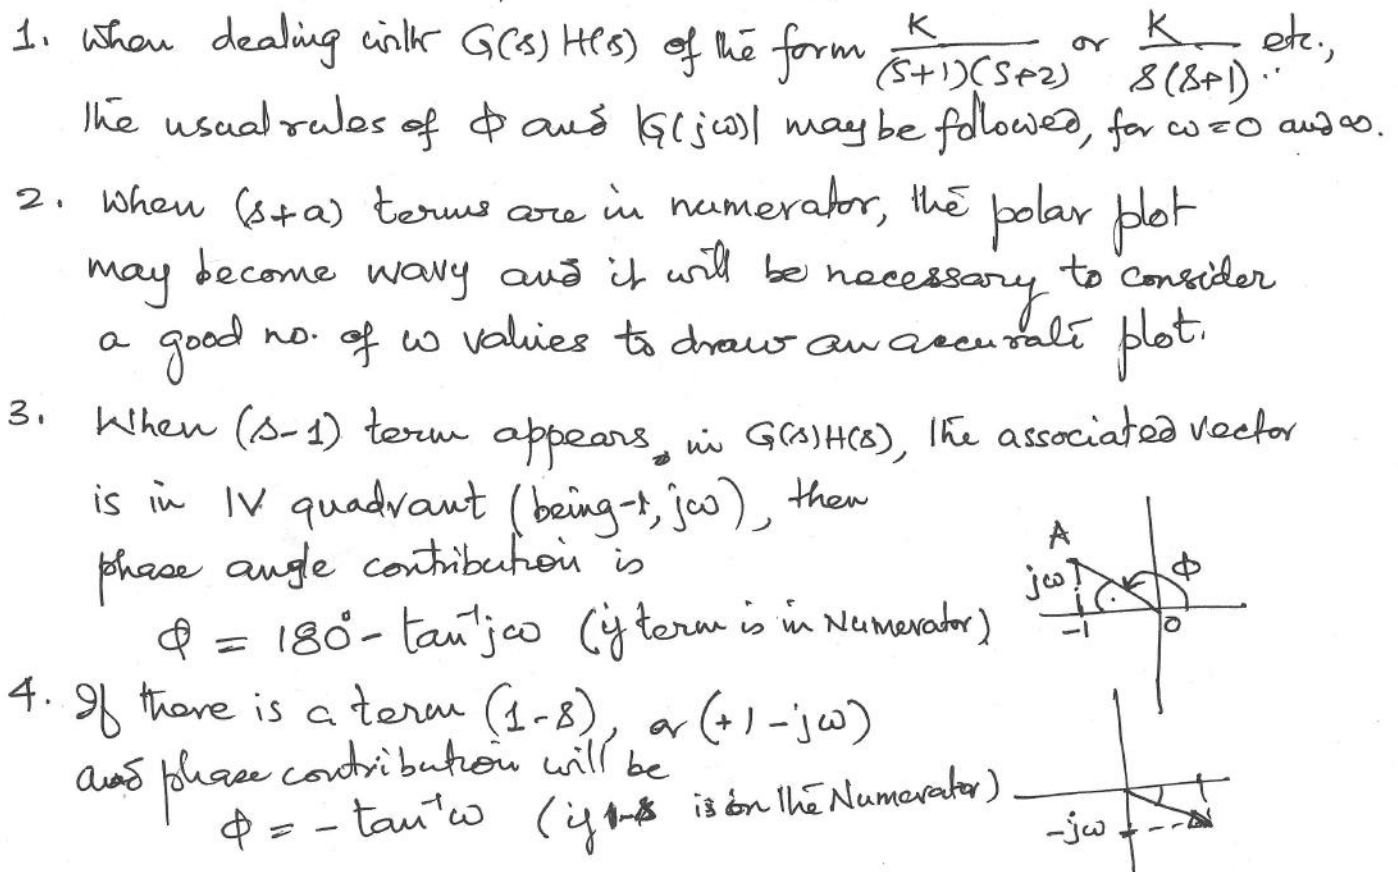 1. When dealing with G(s) H(s) of the form K/(s+1)(s+2) or K/s(s+1) etc.,
the usual rules of ϕ and |G(jω)| may be followed, for ω=0 and ∞.
2. When (s+a) terms are in numerator, the polar plot
may become wavy and it will be necessary to consider
a good no. of ω values to draw an accurate plot.
3. When (s-1) term appears in G(s)H(s), the associated vector
is in IV quadrant (being -1, jω), then
phase angle contribution is
ϕ = 180° - tan⁻¹jω (if term is in Numerator)
A
jω
ϕ
-1
0
4. If there is a term (1-s), or (+1-jω)
and phase contribution will be
ϕ = - tan⁻¹ω (if 1-s is in the Numerator)
1
-jω